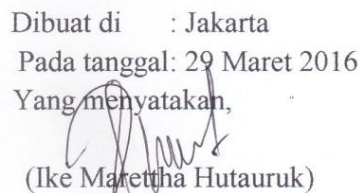 Dibuat di : Jakarta
Pada tanggal: 29 Maret 2016
Yang menyatakan,
(Ike Marettha Hutauruk)